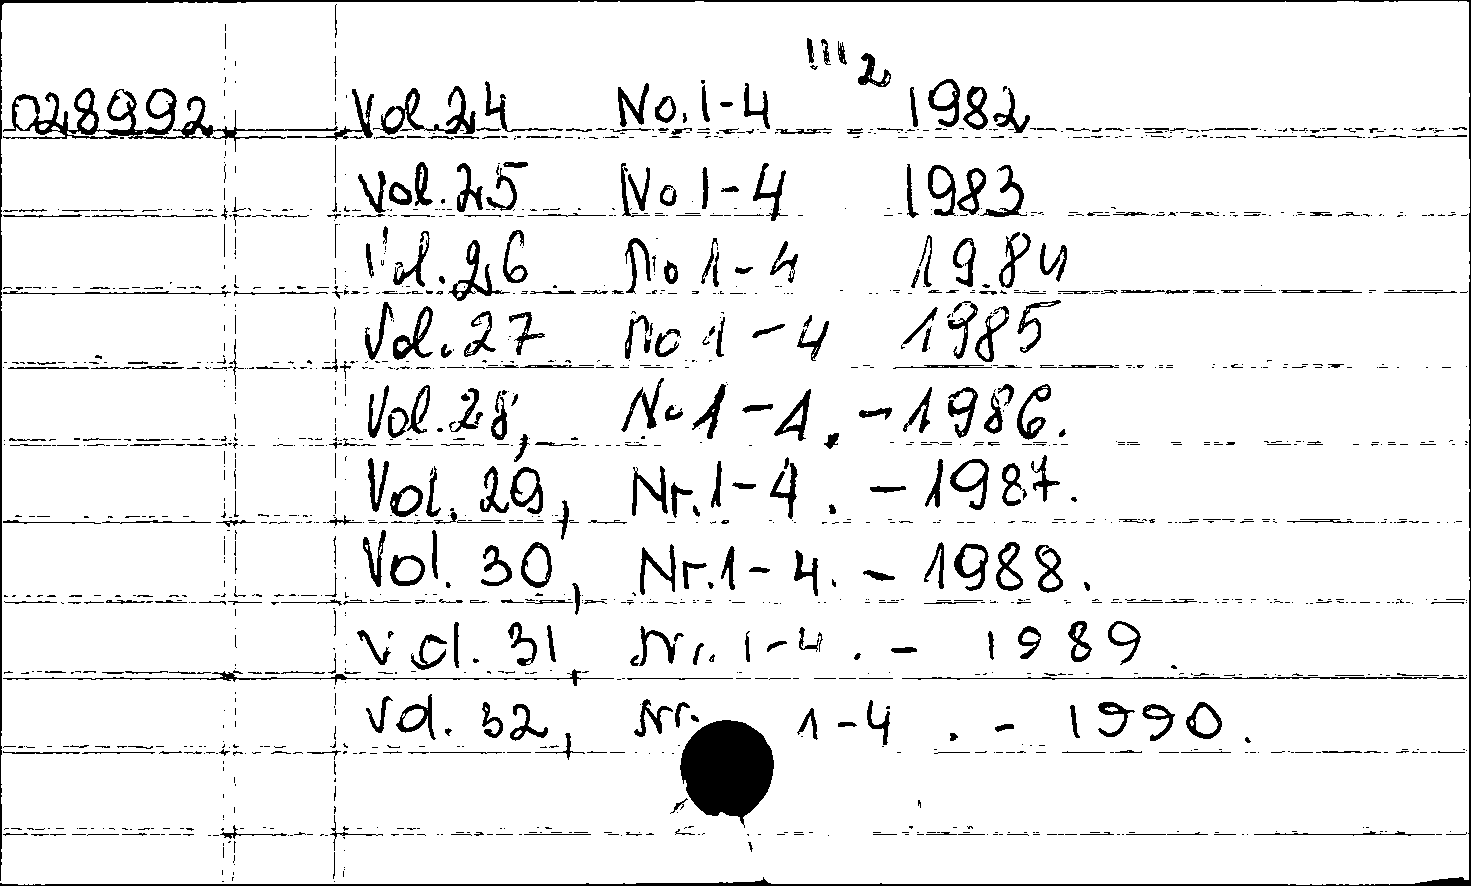 III 2
028992 Vol. 24 No. 1-4 1982
Vol. 25 No 1-4 1983
Vol. 26 No 1-4 1984
Vol. 27 No 1-4 1985
Vol. 28, No 1-4. - 1986.
Vol. 29, Nr. 1-4. - 1987.
Vol. 30, Nr. 1-4. - 1988.
Vol. 31, Nr. 1-4. - 1989.
Vol. 32, Nr. 1-4. - 1990.